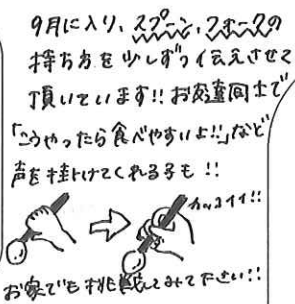 9月に入り、スプーン、フォークの
持ち方を少しずつ伝えさせて
頂いています!!お友達同士で
「こうやったら食べやすいよ!!」など
声を掛けてくれる子も!!
カッコイイ!!
お家でも挑戦してみて下さい!!